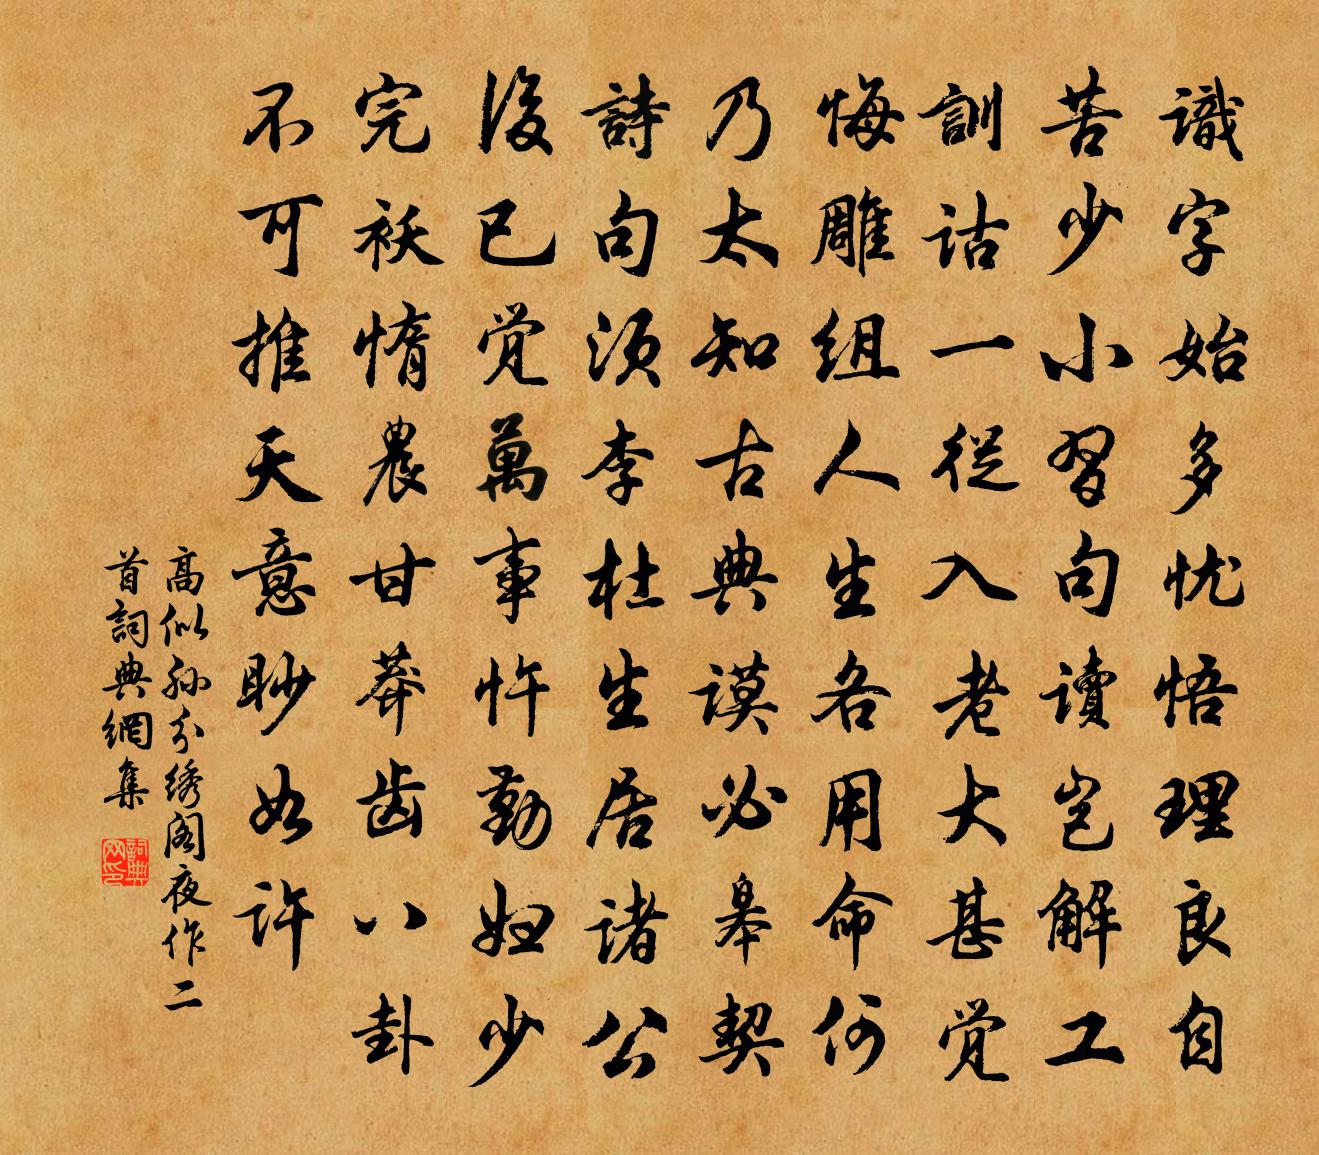 識字始多忧悟理良自
苦少小習句讀岂解工
訓诂一從入老大甚覚
悔雕组人生各用命何
乃太知古典謨必皋契
詩句须李杜生居諸公
後已覚萬事忤勤妞少
完袄惰農甘莽齿八卦
不可推天意眇如许
高似孙分绣阁夜作二
首詞典網集
詞典网印